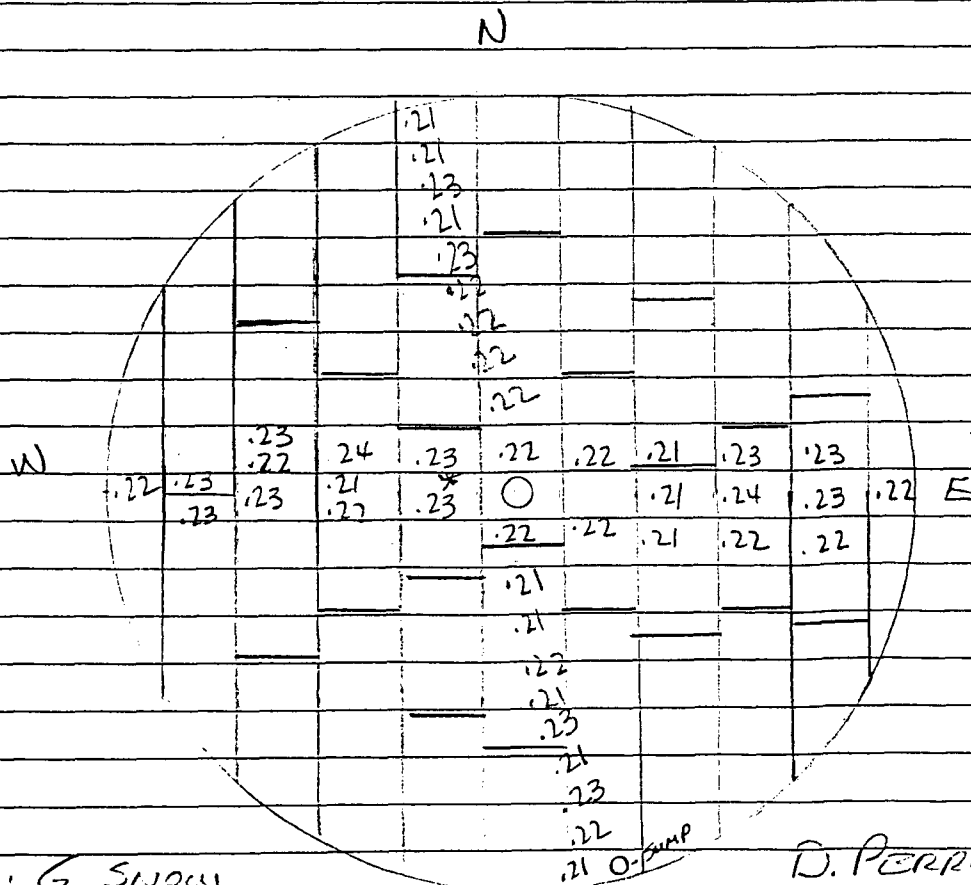 N
.21
.21
.23
.21
.23
.22
.22
.22
.22
W
.23
.22 .24 .23 .22 .22 .21 .23 .23
.22 .23 .23 .21 * .23 .21 .24 .23 .22 E
.23 .22 .22 .22 .21 .22 .22
.21
.21
.22
.21
.23
.21
.23
.22
.21 SUMP
G SNOW D. PERR